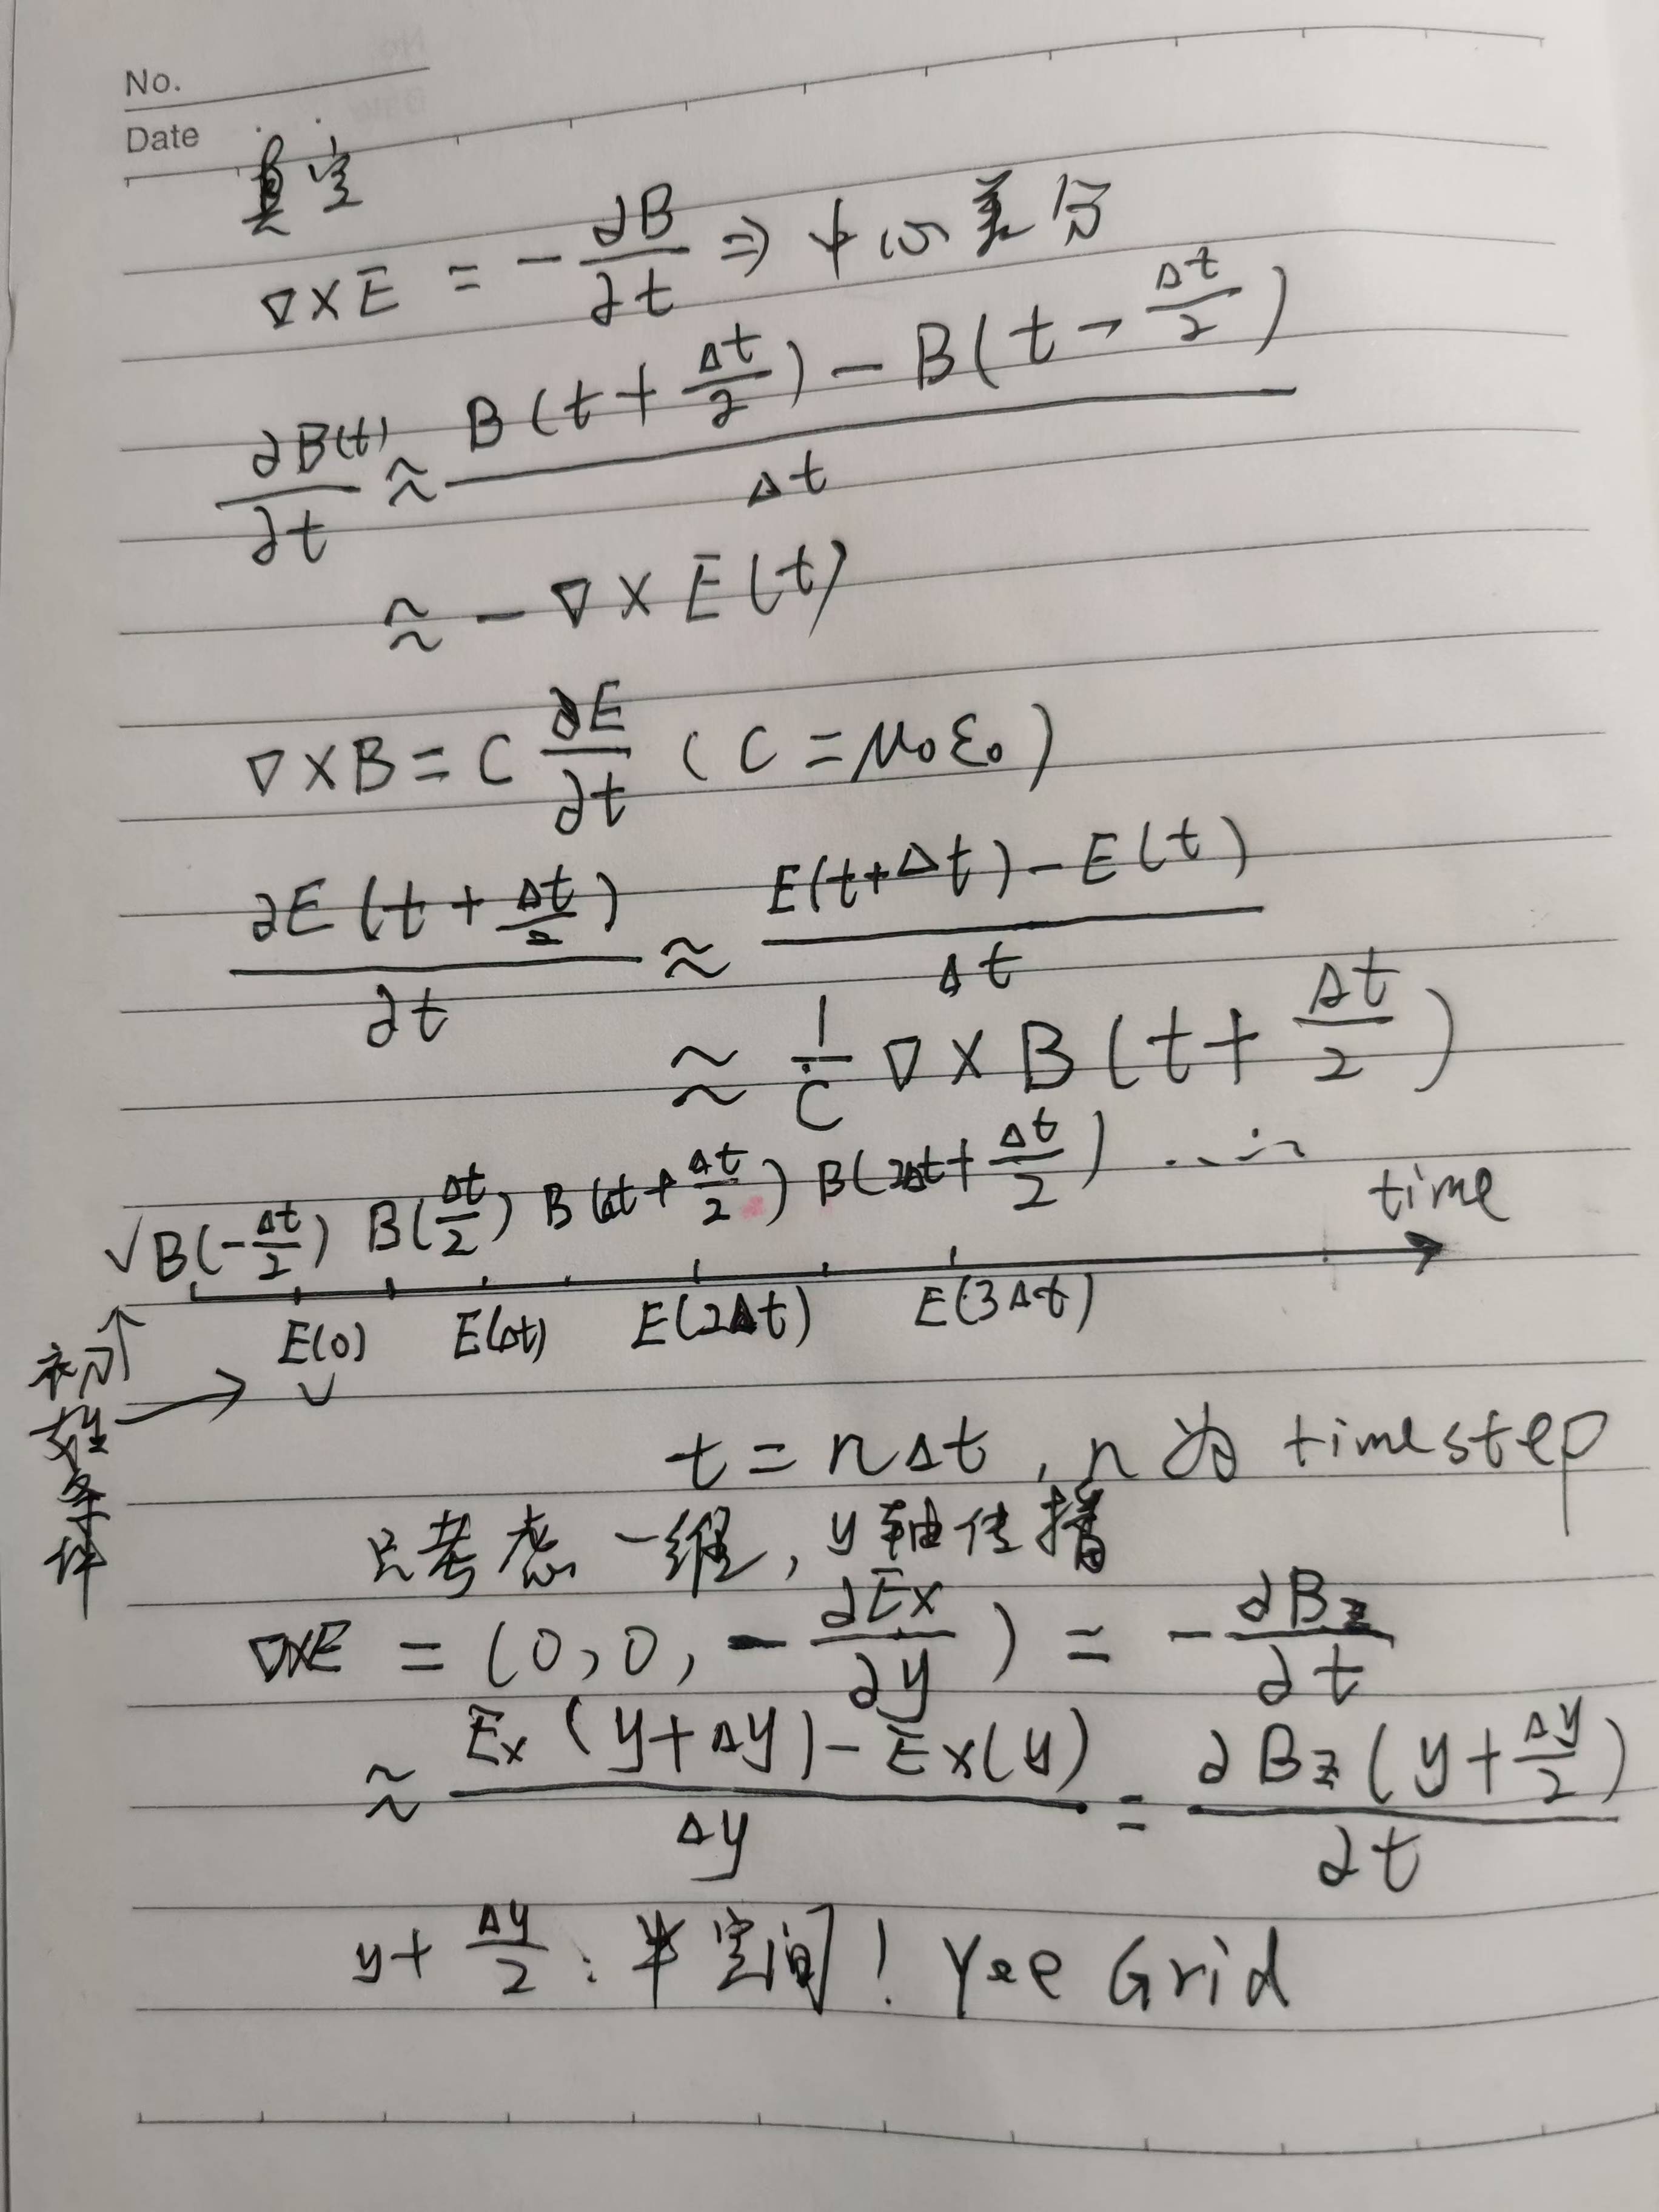 No.
Date
真空
∇×E = -∂B/∂t ⇒ 中心差分
∂B(t)/∂t ≈ (B(t+Δt/2) - B(t-Δt/2))/Δt
≈ -∇×E(t)
∇×B = C ∂E/∂t (C = μ₀ε₀)
∂E(t+Δt/2)/∂t ≈ (E(t+Δt) - E(t))/Δt
≈ 1/C ∇×B(t+Δt/2)
√B(-Δt/2) B(Δt/2) B(Δt+Δt/2) B(2Δt+Δt/2) ......
time
E(0) E(Δt) E(2Δt) E(3Δt)
√
初始条件
t = nΔt, n为 timestep
只考虑一维, y轴传播
∇×E = (0,0,-∂Ex/∂y) = -∂Bz/∂t
≈ (Ex(y+Δy) - Ex(y))/Δy = ∂Bz(y+Δy/2)/∂t
y+Δy/2: 半空间! Yee Grid